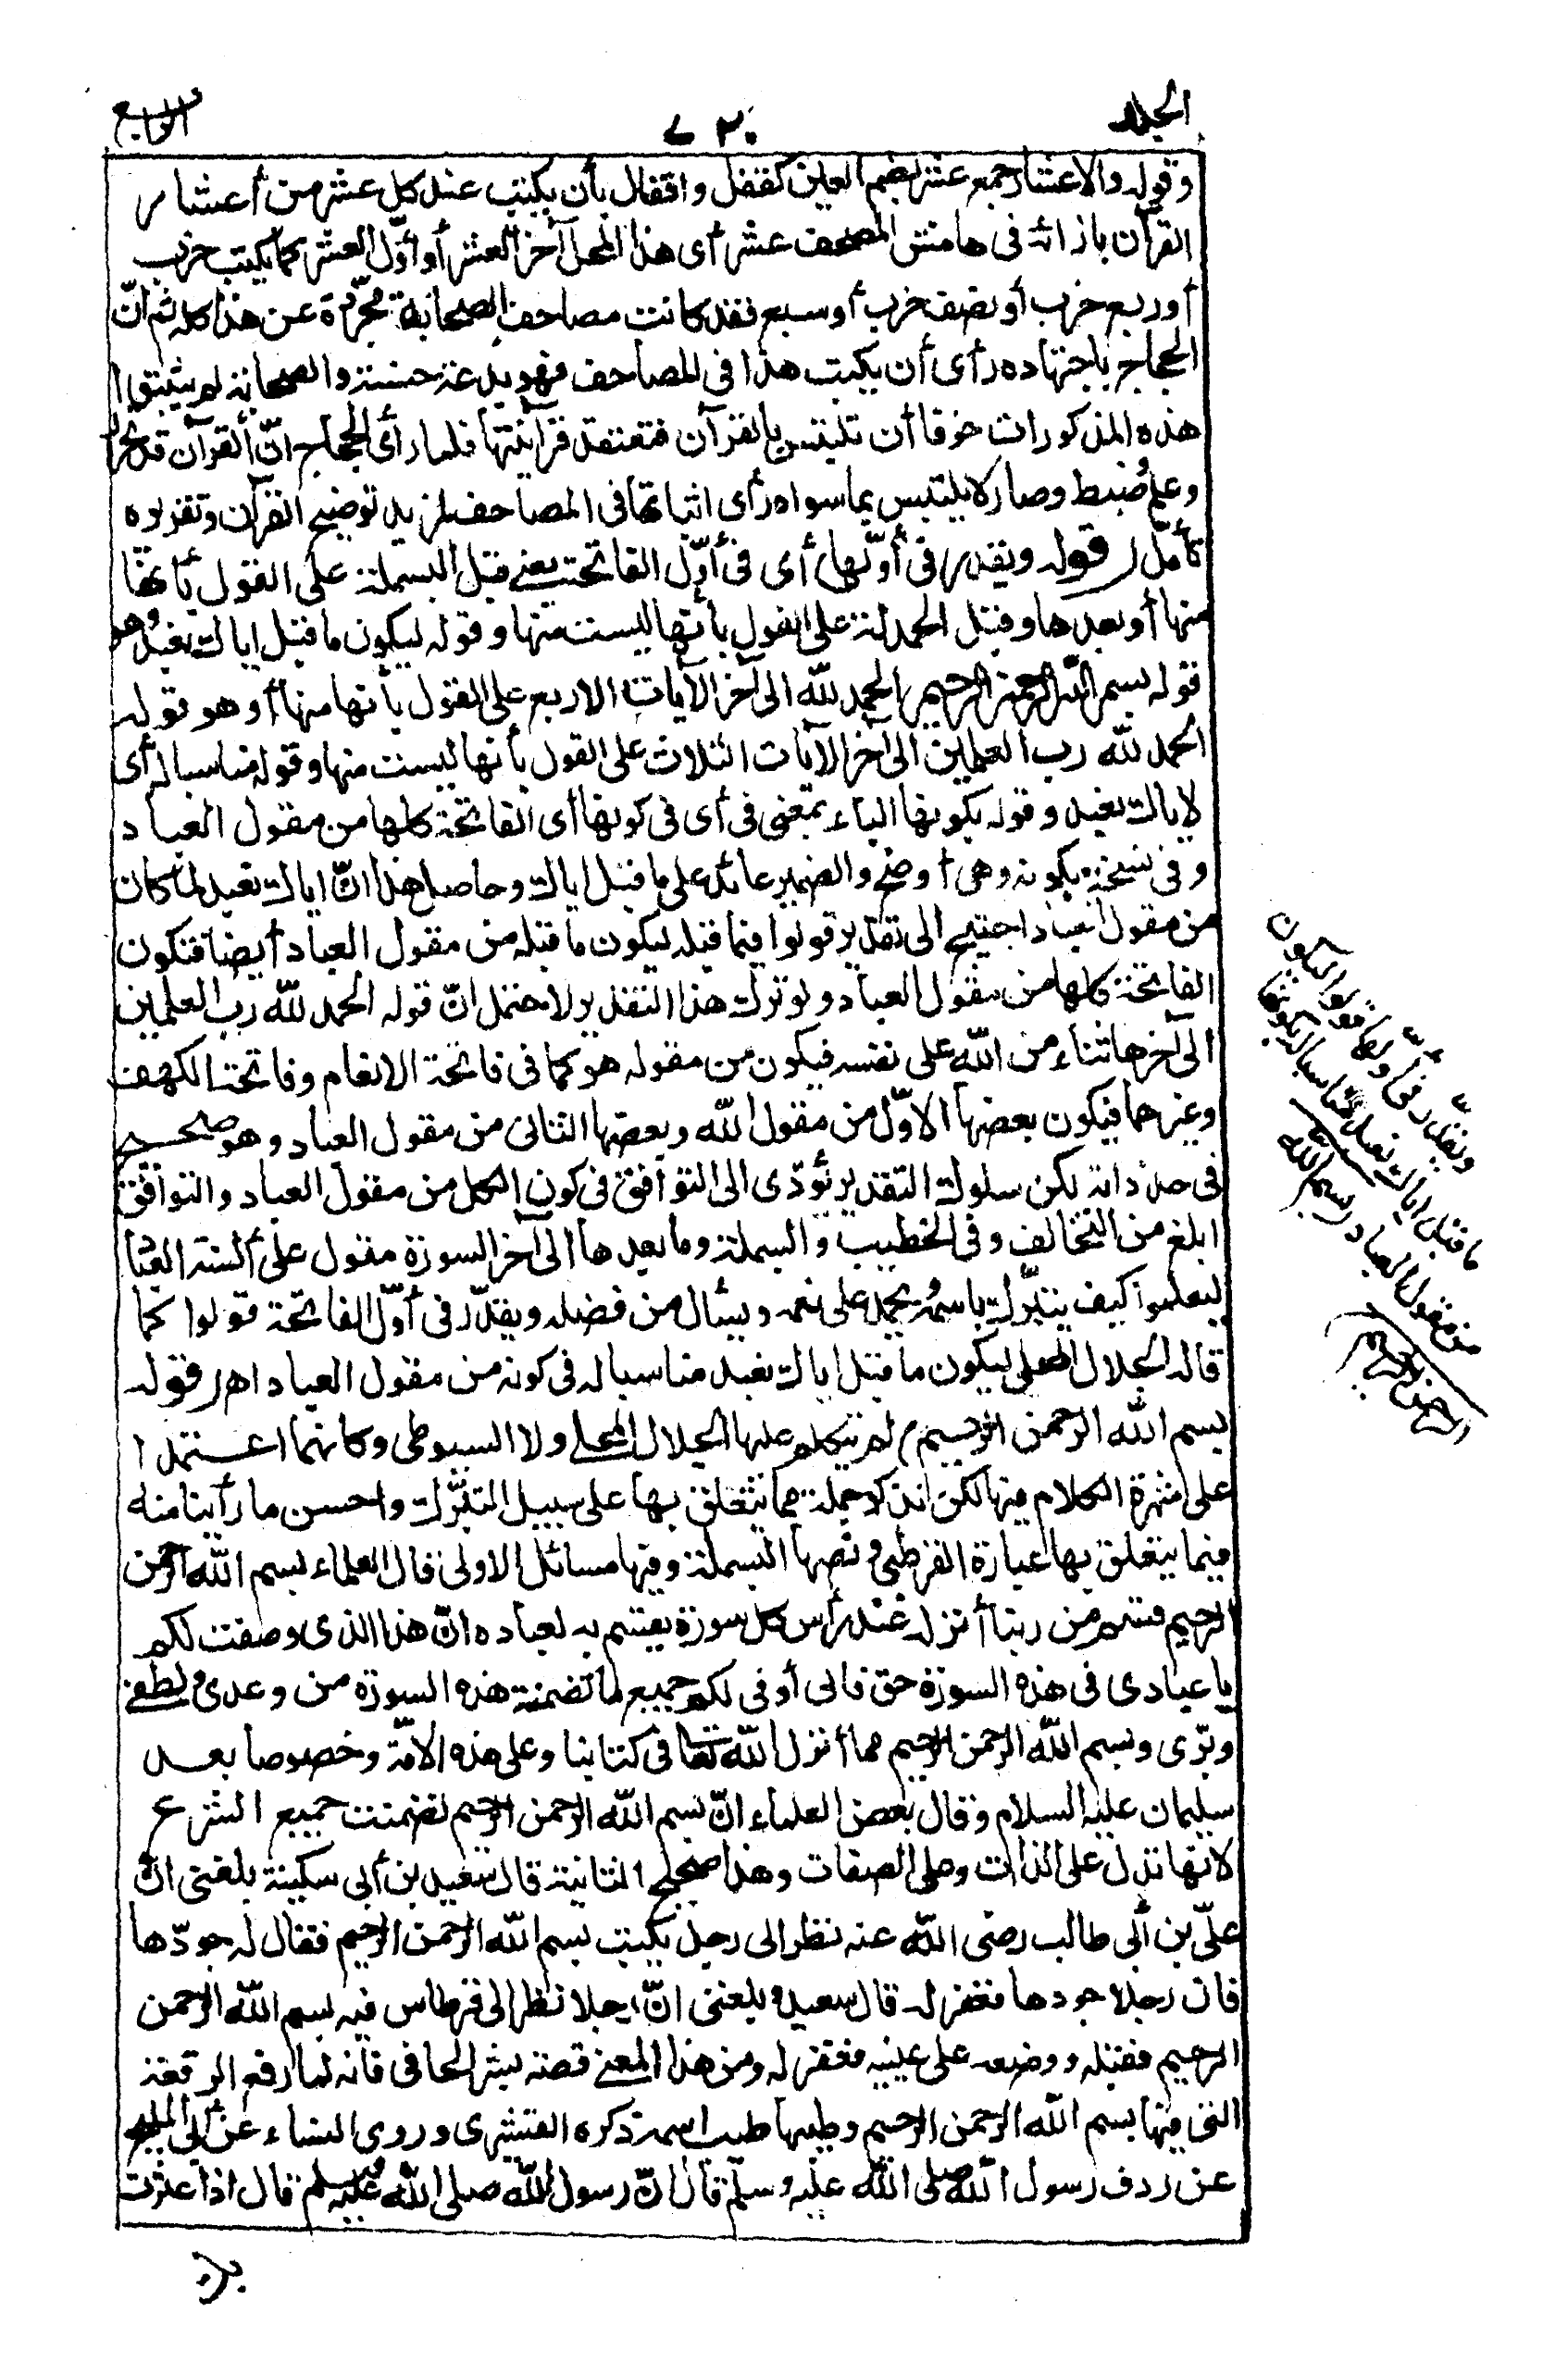 الجلد
٧٢٠
الرابع
وقوله والاعشار جمع عشر بضم العين كقفل واقفال بأن يكتب عند كل عشر من أعشار
القرآن بازائه فى هامش المصحف عشر أى هذا المحل آخر العشر أو أوّل العشر كما يكتب حزب
أوربع حزب أو نصف حزب أوسبع فقد كانت مصاحف الصحابة مجرّدة عن هذا كله ثم انّ
الحجاج باجتهاده رأى أن يكتب هذا فى المصاحف فهو بدعة حسنة والصحابة لم يثبتوا
هذه المذكورات خوفا أن تلتبس بالقرآن فتعتقد قرآنيتها فلما رأى الحجاج انّ القرآن قد تحرّر
وعلم ضبط وصار لا يلتبس بما سواه رأى اثباتها فى المصاحف لمزيد توضيح القرآن وتقريره
تأمّل (قوله ويقدر فى أوّلها) أى فى أوّل الفاتحة يعنى قبل البسملة على القول بأنها
منها أو بعدها وقبل الحمدلة على القول بأنها ليست منها وقوله ليكون ما قبل اياك نعبد وهو
قوله بسم الله الرحمن الرحيم الحمد لله الى آخر الآيات الاربع على القول بأنها منها أو هو قوله
الحمد لله رب العلمين الى آخر الآيات الثلاث على القول بأنها ليست منها وقوله مناسبا له أى
لاياك نعبد وقوله بكونها الباء بمعنى فى أى فى كونها أى الفاتحة كلها من مقول العباد
وفى نسخة بكونه وهى أوضح والضمير عائد على ما قبل اياك وحاصل هذا انّ اياك نعبد لما كان
من مقول العباد احتيج الى تقدير قولوا فيما قبله ليكون ما قبله من مقول العباد أيضا فتكون
الفاتحة كلها من مقول العباد ولو ترك هذا التقدير لاحتمل انّ قوله الحمد لله رب العلمين
الى آخرها ثناء من الله على نفسه فيكون من مقوله هو كما فى فاتحة الانعام وفاتحة الكهف
وغيرهما فيكون بعضها الاوّل من مقول الله وبعضها الثانى من مقول العباد وهو صحيح
فى حد ذاته لكن سلوك التقدير يؤدّى الى التوافق فى كون الكل من مقول العباد والتوافق
ابلغ من التخالف وفى الخطيب والبسملة وما بعدها الى آخر السورة مقول على ألسنة العباد
ليعلموا كيف يتبرّك باسمه ويحمد على نعمه ويسأل من فضله ويقدّر فى أوّل الفاتحة قولوا كما
قاله الجلال المحلى ليكون ما قبل اياك نعبد مناسبا له فى كونه من مقول العباد اهـ (قوله
بسم الله الرحمن الرحيم) لم يتكلم عليها الجلال المحلى ولا السيوطى وكأنهما اعتمدا
على شهرة الكلام فيها لكن اذكر جملة مما يتعلق بها على سبيل التبرّك واحسن ما رأينا منه
فيما يتعلق بها عبارة القرطبى ونصها البسملة وفيها مسائل الاولى قال العلماء بسم الله الرحمن
الرحيم قسم من ربنا أنزله عند رأس كل سورة يقسم به لعباده انّ هذا الذى وصفت لكم
يا عبادى فى هذه السورة حق فانى أوفى لكم جميع ما تضمنته هذه السورة من وعدى ولطفى
وبرّى وبسم الله الرحمن الرحيم مما أنزل الله تعا فى كتابنا وعلى هذه الامّة وخصوصا بعد
سليمان عليه السلام وقال بعض العلماء انّ بسم الله الرحمن الرحيم تضمنت جميع الشرع
لانها تدل على الذات وعلى الصفات وهذا صحيح الثانية قال سعيد بن أبى سكينة بلغنى انّ
علىّ بن أبى طالب رضى الله عنه نظر الى رجل يكتب بسم الله الرحمن الرحيم فقال له جوّدها
فان رجلا جودها فغفر له قال سعيد وبلغنى انّ رجلا نظر الى قرطاس فيه بسم الله الرحمن
الرحيم فقبله ووضعه على عينيه فغفر له ومن هذا المعنى قصة بشر الحافى فانه لما رفع الرقعة
التى فيها بسم الله الرحمن الرحيم وطيبها طيب اسمه ذكره القشيرى وروى النساء عن أبى المليح
عن ردف رسول الله صلى الله عليه وسلم قال انّ رسول الله صلى الله عليه وسلم قال اذا عثرت
ويقدّر فى أوّلها قولوا ليكون
ما قبل اياك نعبد مناسبا له بكونها
من مقول العباد بسم الله
الرحمن الرحيم